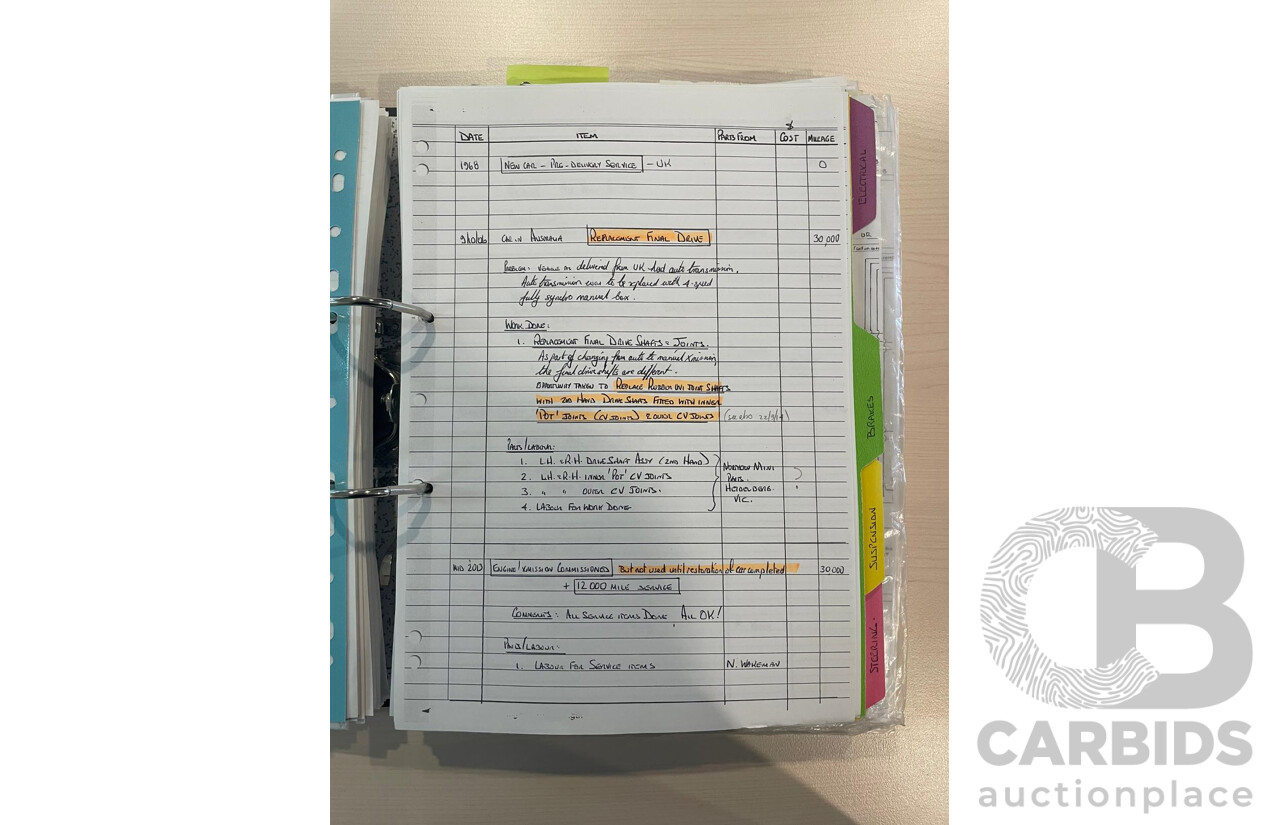 DATE ITEM PARTS FROM $ COST MILEAGE
1968 NEW CAR - PRE-DELIVERY SERVICE - UK 0
CAR IN AUSTRALIA REPLACEMENT FINAL DRIVE 30,000
PROBLEM: delivered from UK had auto transmission.
Auto transmission was to be replaced with 4-speed
fully synchro manual box.
WORK DONE:
1. REPLACEMENT FINAL DRIVE SHAFTS & JOINTS.
As part of changing from auto to manual Xmission,
the final drive shafts are different.
OPPORTUNITY TAKEN TO REPLACE RUBBER UNI JOINT SHAFTS
WITH 2ND HAND DRIVE SHAFTS FITTED WITH INNER
'POT' JOINTS (CV JOINTS) & OUTER CV JOINTS
PARTS/LABOUR:
1. L.H. & R.H. DRIVE SHAFT ASSY (2ND HAND)
2. L.H. & R.H. INNER 'POT' CV JOINTS
3. " " OUTER CV JOINTS.
4. LABOUR FOR WORK DONE
MINI
PARTS.
HEIDELBERG.
VIC.
MID 2013 ENGINE/XMISSION COMMISSIONED But not used until restoration of car completed 30,000
+ 12 000 MILE SERVICE
COMMENTS: ALL SERVICE ITEMS DONE, ALL OK!
PARTS/LABOUR:
1. LABOUR FOR SERVICE ITEMS N. WAKEMAN
ELECTRICAL
BRAKES
SUSPENSION
STEERING.
CB
CARBIDS
auctionplace